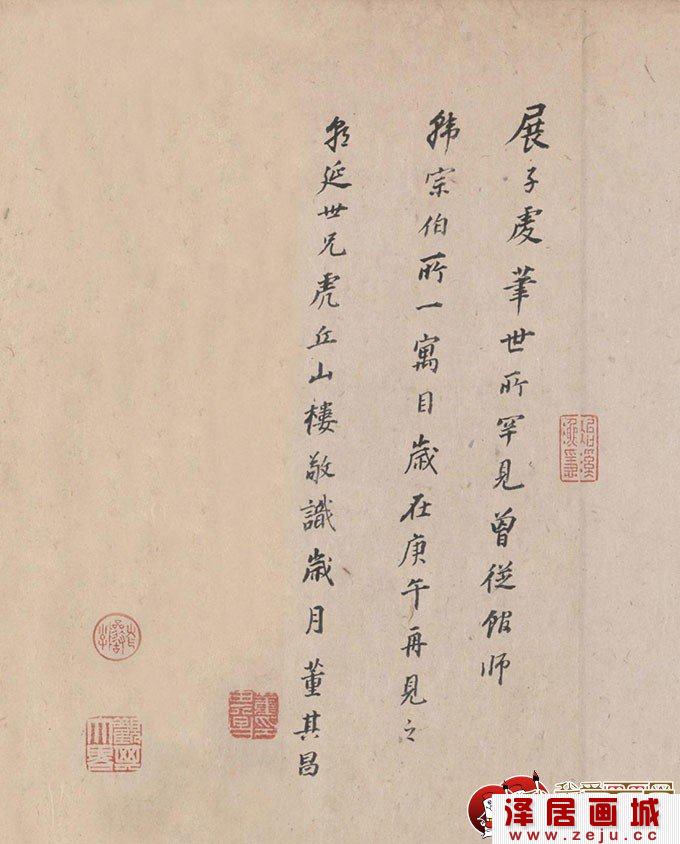 展子虔筆世所罕見曾從館師
韓宗伯所一寓目歲在庚午再見之
朝延世兄虎丘山樓敬識歲月 董其昌
冶溪漁隱
觀其大略
泽居画城
www.zeju.com